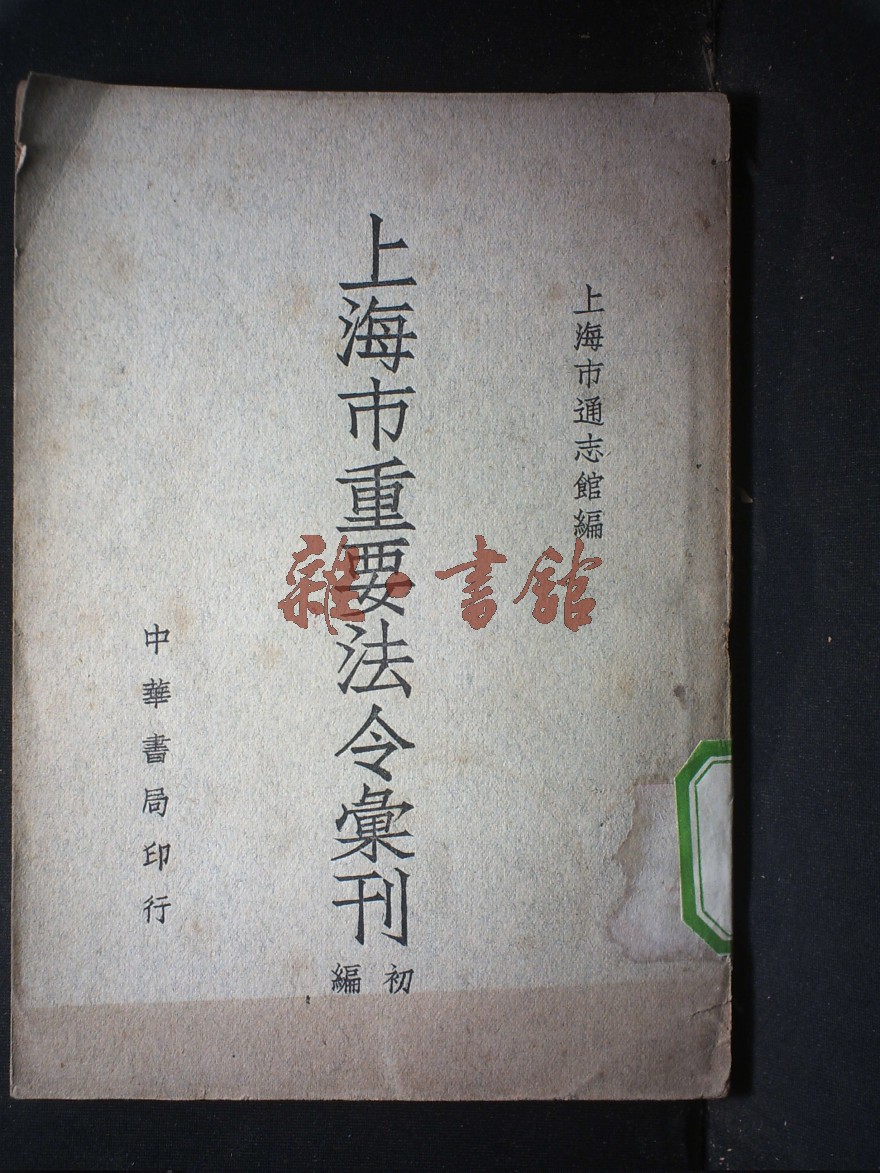 上海市通志館編
上海市重要法令彙刊
初編
中華書局印行
雜·書館